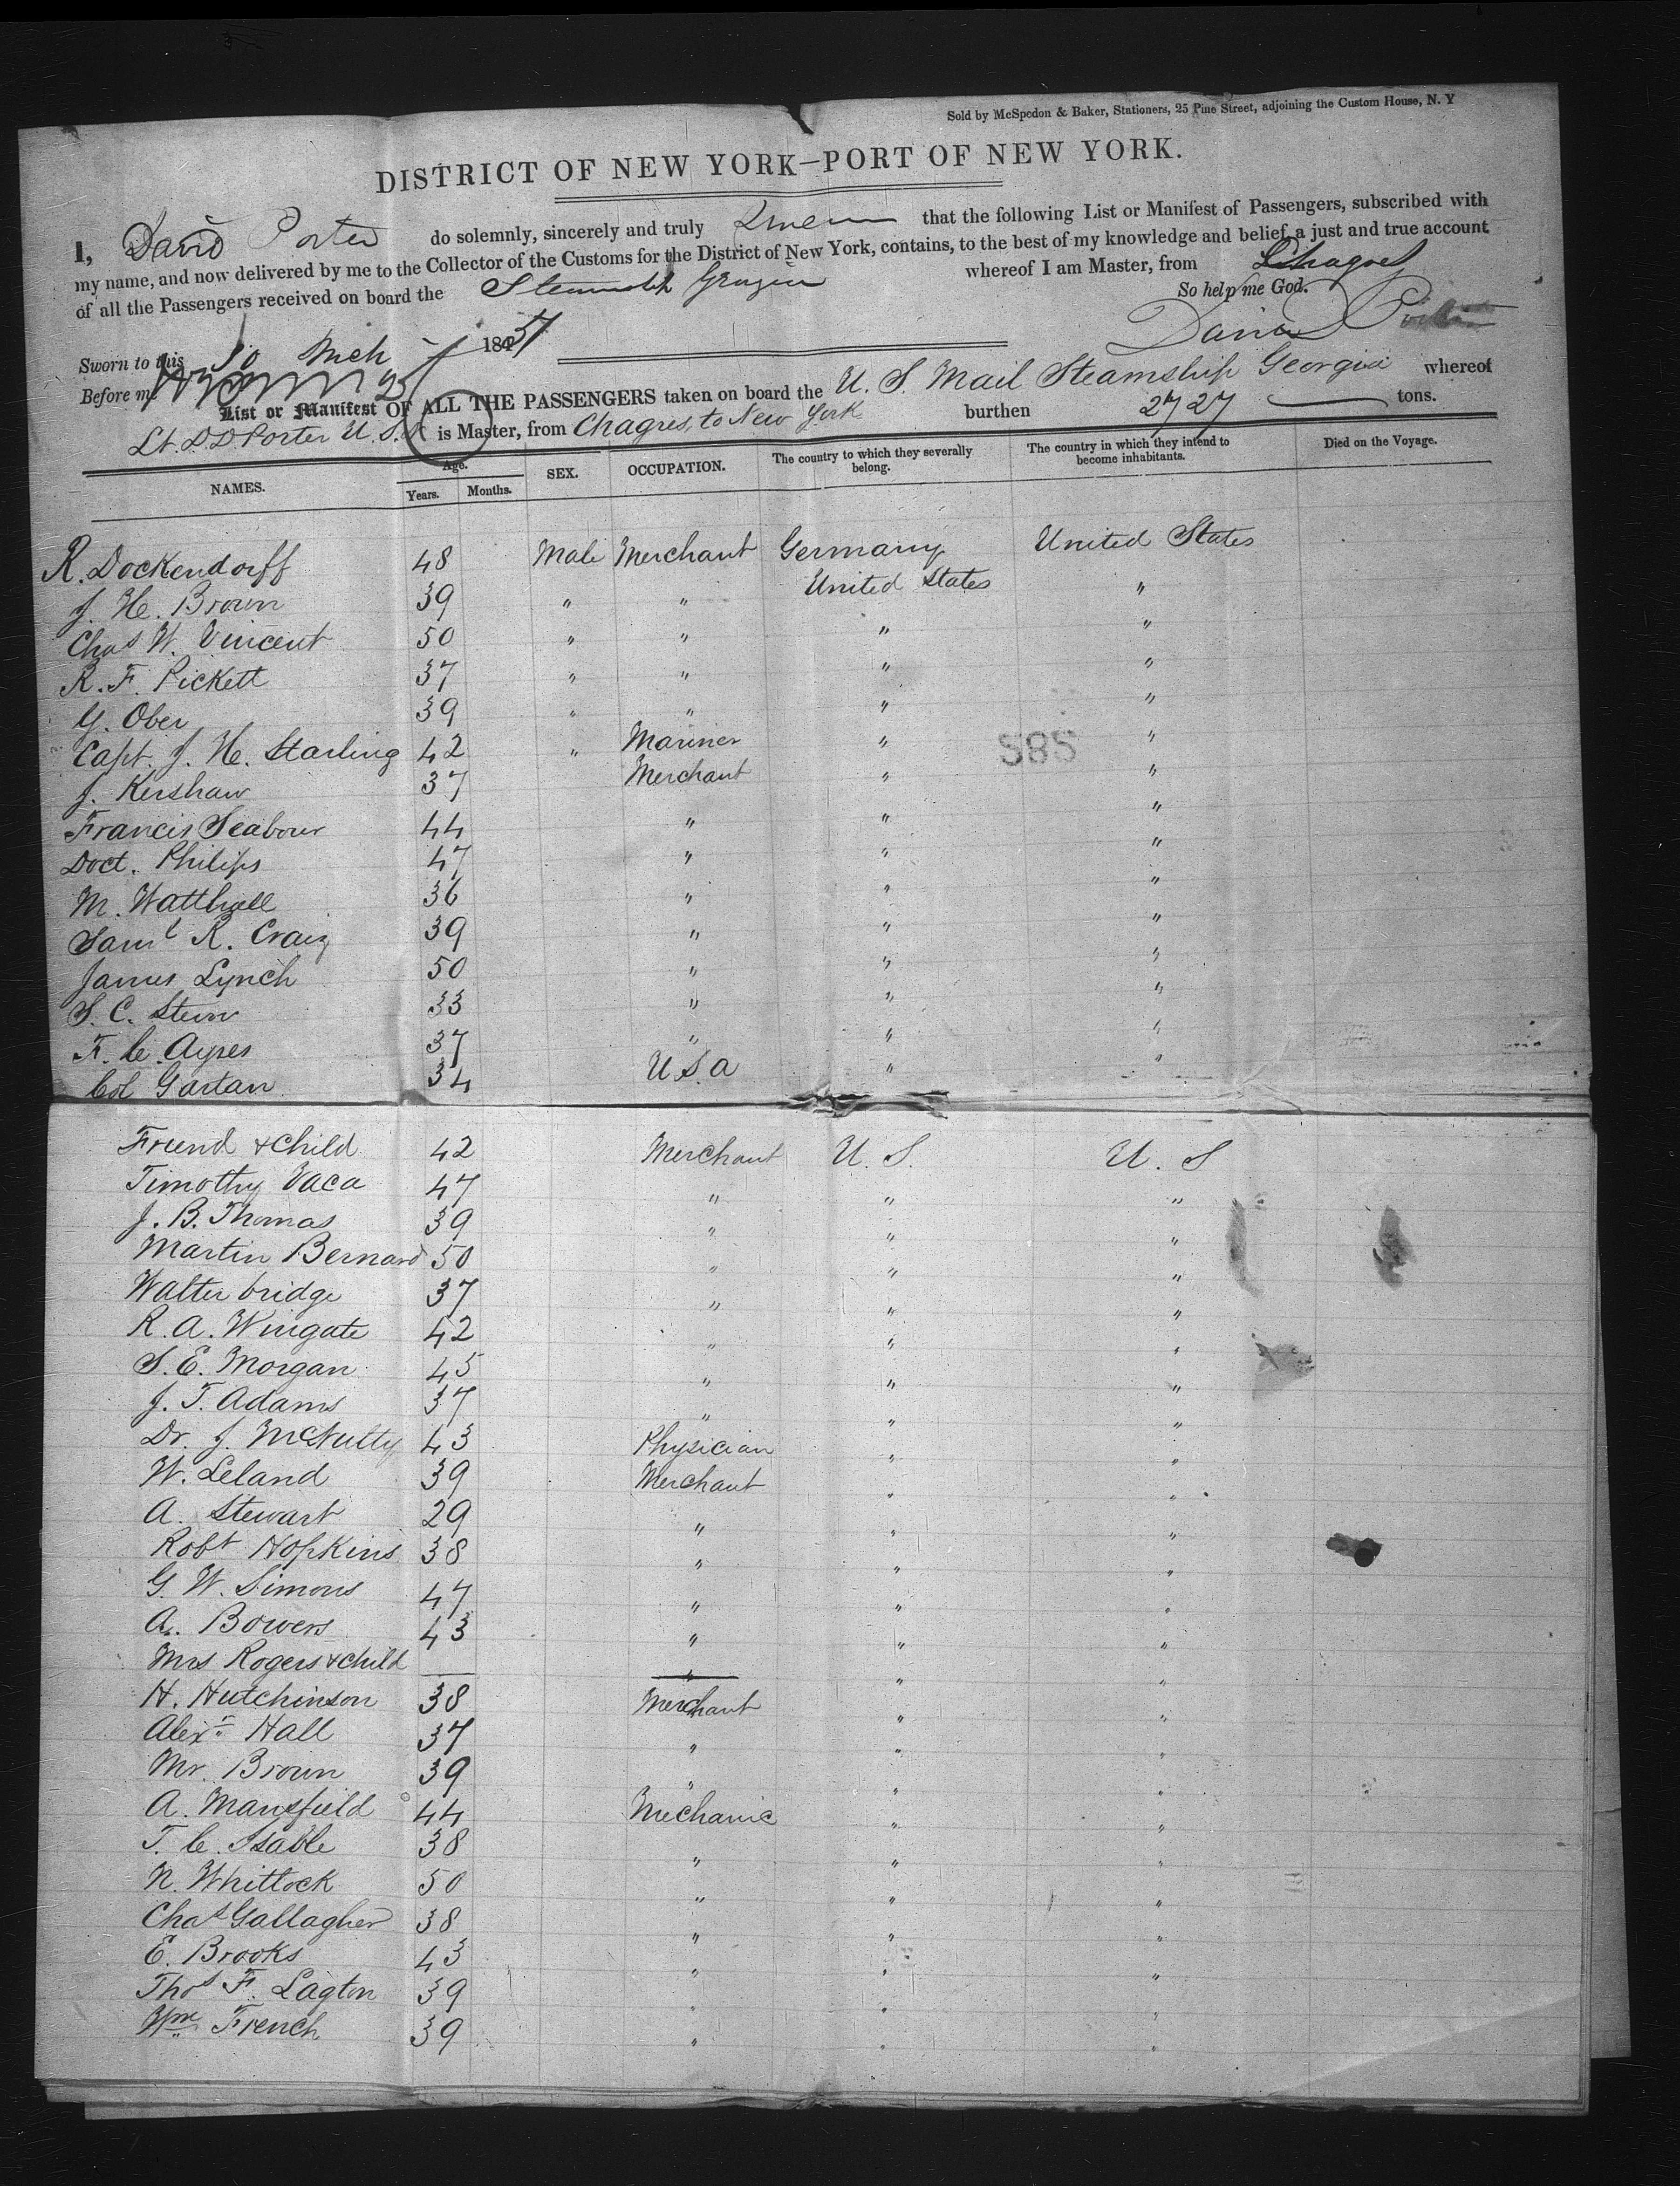 Sold by McSpedon & Baker, Stationers, 25 Pine Street, adjoining the Custom House, N. Y
DISTRICT OF NEW YORK—PORT OF NEW YORK.
I, David Porter do solemnly, sincerely and truly that the following List or Manifest of Passengers, subscribed with
my name, and now delivered by me to the Collector of the Customs for the District of New York, contains, to the best of my knowledge and belief, a just and true account
of all the Passengers received on board the whereof I am Master, from Chagres
So help me God.
Sworn to this 10 Mch 1851
David Porter
Before me
List or Manifest OF ALL THE PASSENGERS taken on board the U. S. Mail Steamship Georgia whereof
Lt. D. D. Porter U. S. N is Master, from Chagres, to New York burthen 2727 tons.
NAMES. Age. Years. Months. SEX. OCCUPATION. The country to which they severally belong. The country in which they intend to become inhabitants. Died on the Voyage.
R. Dockendorff 48 Male Merchant Germany United States
J. H. Brown 39 " " United States "
Chas W. Vincent 50 " " " "
R. F. Pickett 37 " " " "
G. Ober 39 " " " "
Capt. J. H. Starling 42 " Mariner " "
585
J. Kershaw 37 Merchant " "
Francis Seabour 44 " " "
Doct. Philips 47 " " "
M. Watthall 36 " " "
Saml R. Craig 39 " " "
James Lynch 50 " " "
S. C. Stein 33 " " "
F. C. Ayres 37 " " "
Col Gartan 34 U.S.A " "
Friend & Child 42 Merchant U. S. U. S
Timothy Vaca 47 " " "
J. B. Thomas 39 " " "
Martin Bernard 50 " " "
Walter bridge 37 " " "
R. A. Wingate 42 " " "
S. E. Morgan 45 " " "
J. T. Adams 37 " " "
Dr. J. McNulty 43 Physician " "
W. Leland 39 Merchant " "
A. Stewart 29 " " "
Robt Hopkins 38 " " "
G. W. Simons 47 " " "
A. Bowers 43 " " "
Mrs Rogers & child — " " "
H. Hutchinson 38 Merchant " "
Alexr Hall 37 " " "
Mr. Brown 39 " " "
A. Mansfield 44 Mechanic " "
T. C. Isable 38 " " "
N. Whittock 50 " " "
Chas Gallagher 38 " " "
E. Brooks 43 " " "
Thos F. Lagton 39 " " "
Wm French 39 " " "